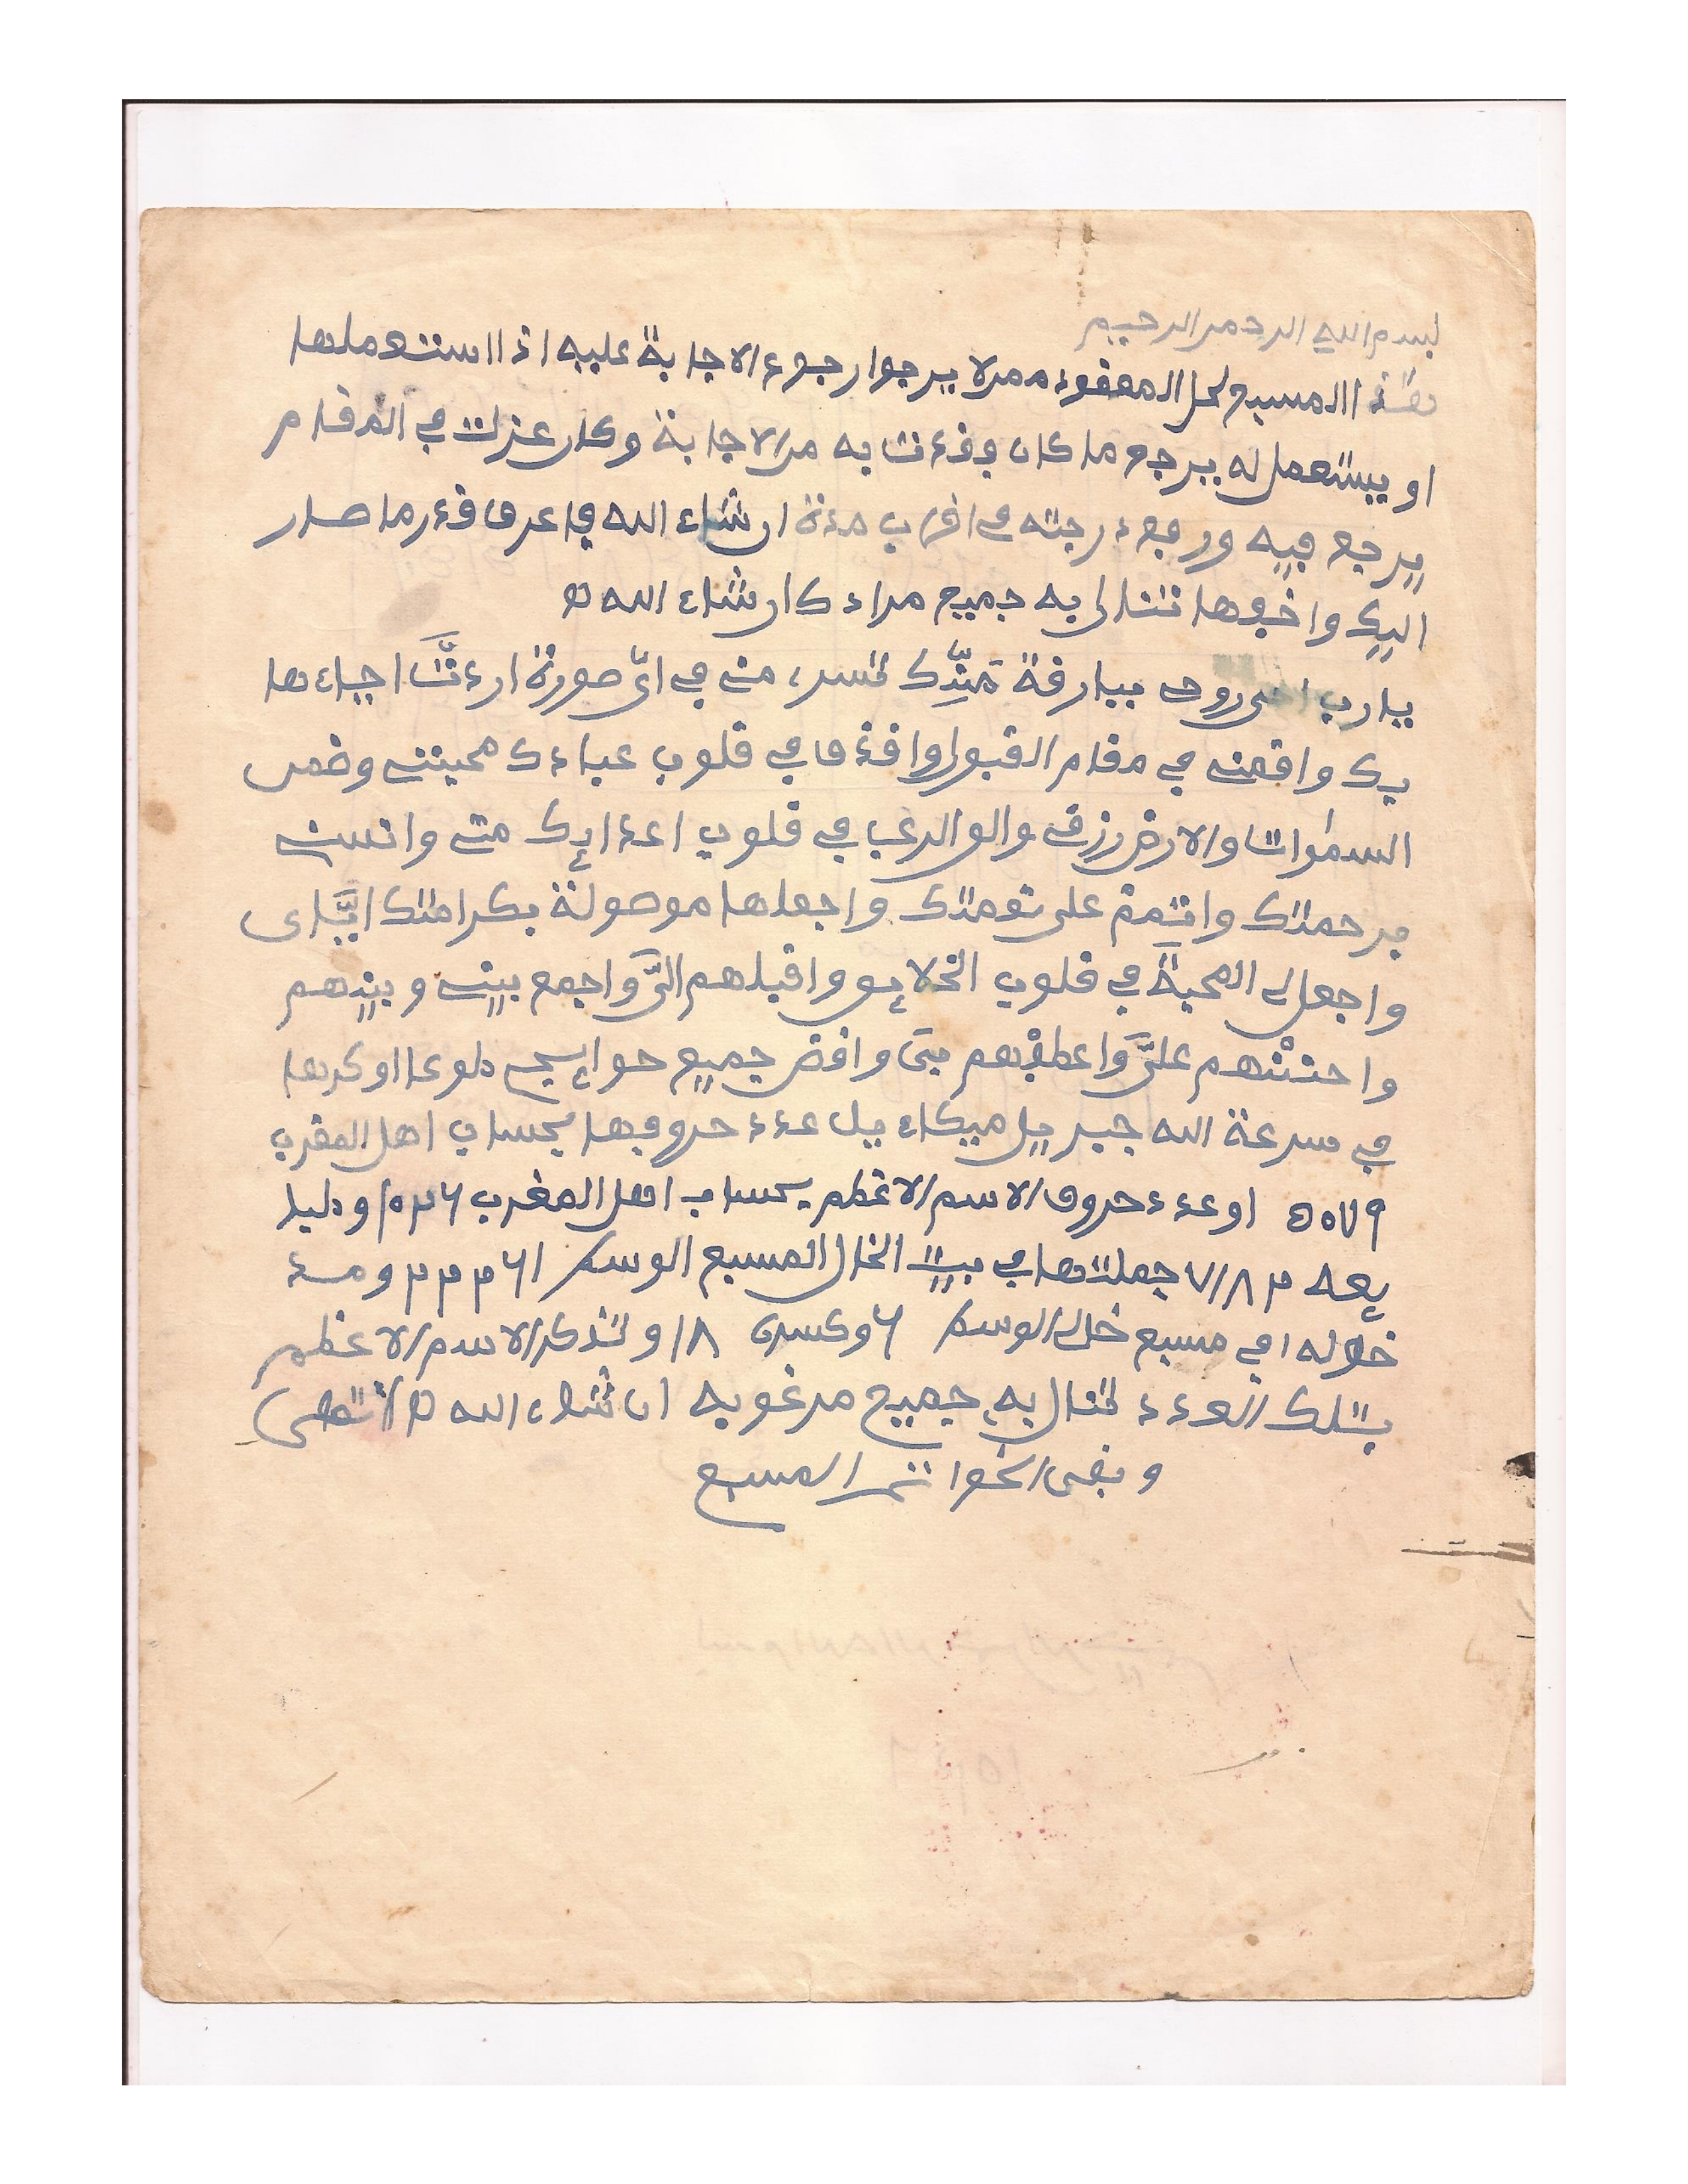 بسم الله الرحمن الرحيم
هذا المسبع لحل المعقود ممن لا يرجوا رجوع الاجابة عليه اذا استعملها
او يستعمل له يرجع ما كان وقدءت به من الاجابة وكان عزلت في المقام
يرجع فيه ورجع درجته في اقرب مدة ان شاء الله فاعرف قدر ما صار
اليك واخفها تنال به جميع مرادك ان شاء الله
يارب روحي ببارقة منك في اي صورة اردت احياءها
بك واقمني في مقام القبول واقذف في قلوب عبادك محبتي وضمن
السموات والارض رزقي والق الرعب في قلوب اعدايك مني وانسني
برحمتك واتممة على نعمتك واجعلها موصولة بكرامتك اياى
واجعل لى المحبة في قلوب الخلايق واقبلهم الى واجمع بينى وبينهم
واحننهم على واعطفهم بى واقض جميع حوايجى طوعا او كرها
في سرعة الله جبريل ميكاءيل عدد حروفها بحساب اهل المغرب
٥٥٧٩ او عدد حروف الاسم الاعظم بحساب اهل المغرب ١٥٣٦ ودليل
يعه ٧١٨٣ جعلتها في بيت الخال المسبع الوسط ١٦٣٣٣ ومدد
خوله ١ في مسبع خالى الوسط ٦ وكسره ١٨ وتذكر الاسم الاعظم
بتلك العدد تنال به جميع مرغوبه ان شاء الله انتهى
وبقى الخواتم المسبع